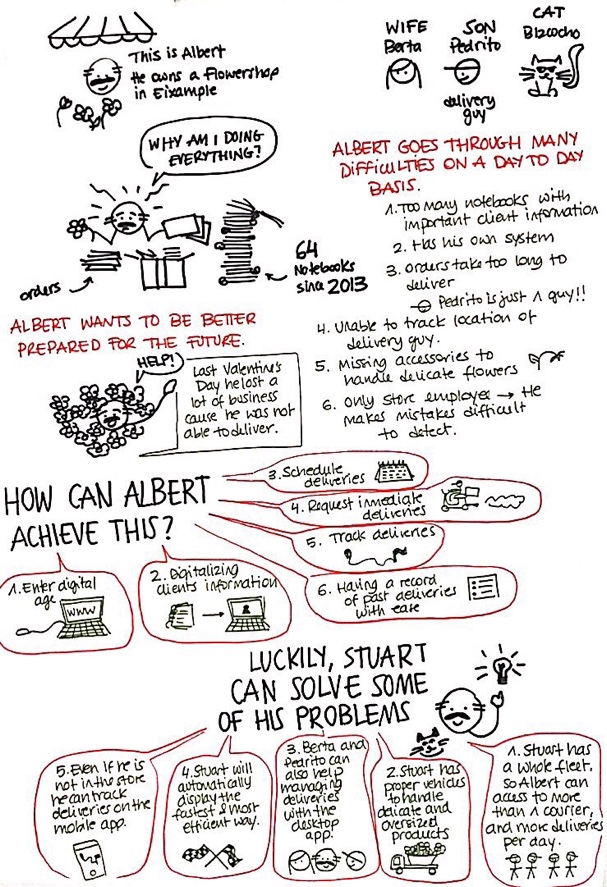 This is Albert
He owns a flowershop
in Eixample
WIFE
Berta
SON
Pedrito
delivery
guy
CAT
Bizcocho
WHY AM I DOING
EVERYTHING?
orders
64
Notebooks
since 2013
ALBERT GOES THROUGH MANY
DIFFICULTIES ON A DAY TO DAY
BASIS.
1. Too many notebooks with
important client information
2. Has his own system
3. Orders take too long to
deliver
Pedrito is just 1 guy!!
4. Unable to track location of
delivery guy.
5. Missing accessories to
handle delicate flowers
6. Only store employee → He
makes mistakes difficult
to detect.
ALBERT WANTS TO BE BETTER
PREPARED FOR THE FUTURE.
HELP!
Last Valentine's
Day he lost a
lot of business
cause he was not
able to deliver.
HOW CAN ALBERT
ACHIEVE THIS?
1. Enter digital
age
WWW
2. Digitalizing
clients information
3. Schedule
deliveries
4. Request inmediate
deliveries
5. Track deliveries
6. Having a record
of past deliveries
with ease
LUCKILY, STUART
CAN SOLVE SOME
OF HIS PROBLEMS
5. Even If he is
not in the store
he can track
deliveries on the
mobile app.
4. Stuart will
automatically
display the
fastest & most
efficient way.
3. Berta and
Pedrito can
also help
managing
deliveries
with the
desktop
app.
2. Stuart has
proper vehicles
to handle
delicate and
oversized
products
1. Stuart has
a whole fleet.
So Albert can
access to more
than 1 courier,
and more deliveries
per day.